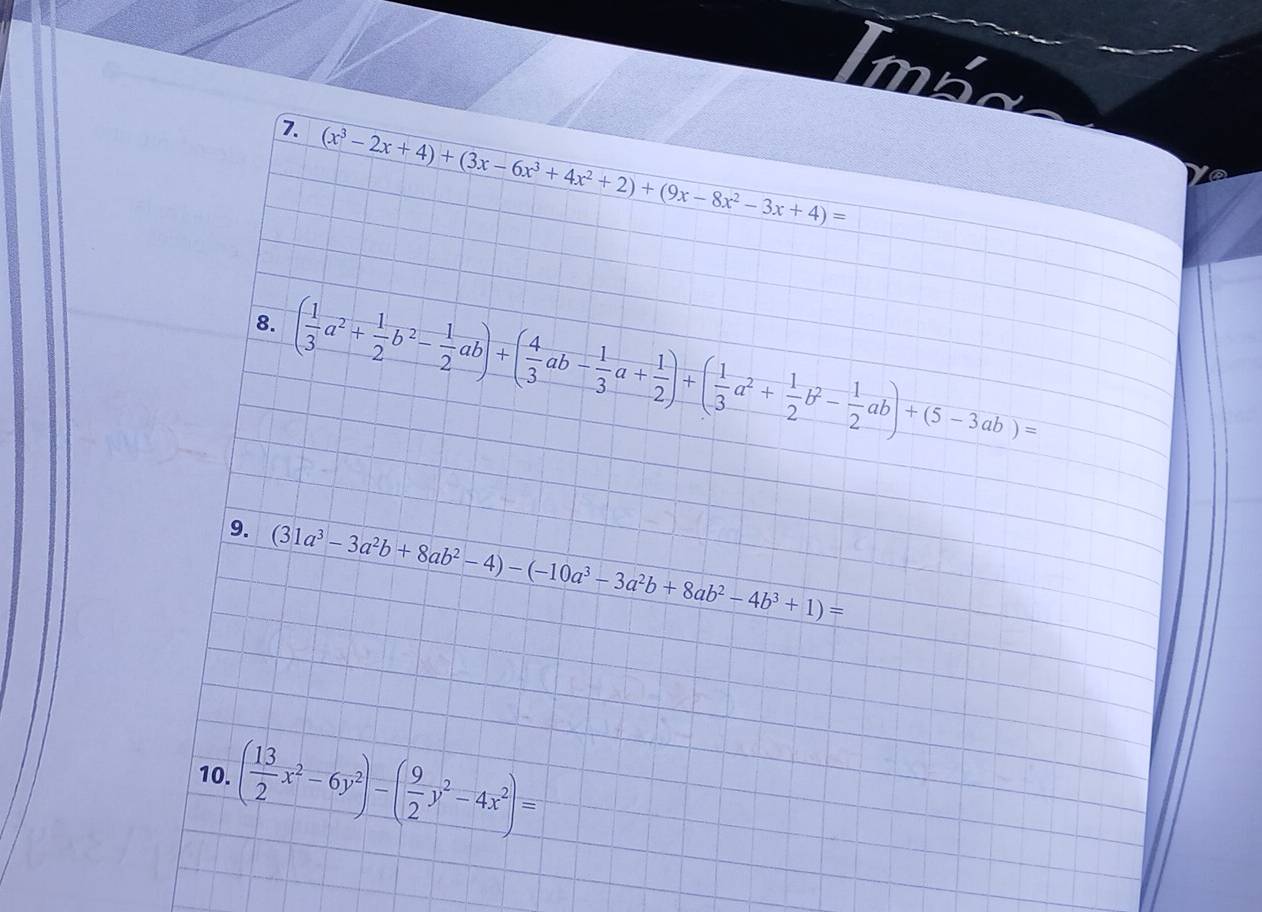 7. (x³ – 2x + 4) + (3x – 6x³ + 4x² + 2) + (9x – 8x² – 3x + 4) =
8. (1/3 a² + 1/2 b² – 1/2 ab) + (4/3 ab – 1/3 a + 1/2) + (1/3 a² + 1/2 b² – 1/2 ab) + (5 – 3ab ) =
9. (31a³ – 3a²b + 8ab² – 4) – (–10a³ – 3a²b + 8ab² – 4b³ + 1) =
10. (13/2 x² – 6y²) – (9/2 y² – 4x²) =